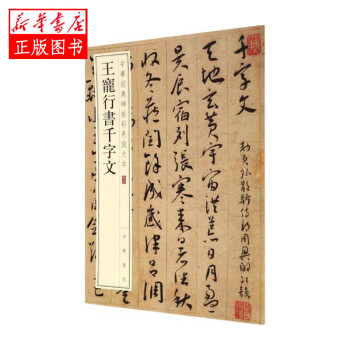 新华书店
正版图书
中華經典碑帖彩色放大本
王寵行書千字文
中華書局
千字文
勑員外散騎侍郎周興嗣次韻
天地玄黃宇宙洪荒日月盈
昃辰宿列張寒來暑往秋
收冬藏閏餘成歲律呂調